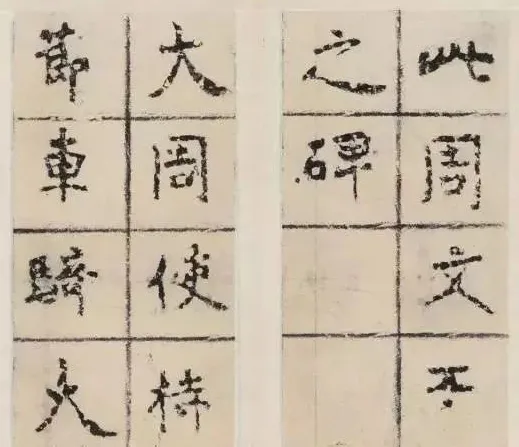 此周文王
之碑
大周使持
節車騎大